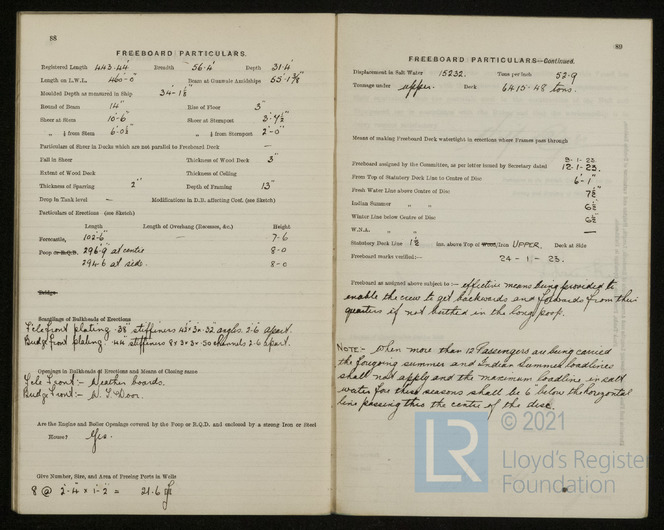 88
FREEBOARD PARTICULARS.
Registered Length 443.44' Breadth 56.4' Depth 31.4'
Length on L.W.L. 460'-0" Beam at Gunwale Amidships 55'-1 7/8"
Moulded Depth as measured in Ship 34'-1 1/2"
Round of Beam 14" Rise of Floor 3"
Sheer at Stem 10'-6" Sheer at Sternpost 3'-4 1/2"
„ ¼ from Stem 6'-0 1/2" „ ¼ from Sternpost 2'-0"
Particulars of Sheer in Decks which are not parallel to Freeboard Deck —
Fall in Sheer — Thickness of Wood Deck 3"
Extent of Wood Deck Thickness of Ceiling
Thickness of Sparring 2" Depth of Framing 13"
Drop in Tank level — Modifications in D.B. affecting Coef. (see Sketch)
Particulars of Erections (see Sketch)
Length Length of Overhang (Recesses, &c.) Height
Forecastle, 102'-6" — 7-6
Poop or R.Q.D. 296'-9 at centre 8-0
294'-6 at side. 8-0
Bridge
Scantlings of Bulkheads of Erections
Fcle front plating .38" stiffeners angles. 2'-6 apart.
Bridge front plating .44" stiffeners channels 2'-6 apart.
Openings in Bulkheads of Erections and Means of Closing same
Fcle Front:- Weather boards.
Bridge Front:- W. T. Door.
Are the Engine and Boiler Openings covered by the Poop or R.Q.D. and enclosed by a strong Iron or Steel
House? Yes.
Give Number, Size, and Area of Freeing Ports in Wells
8 @ 2'-4" x 1'-2" = 21.6
89
FREEBOARD PARTICULARS—Continued.
Displacement in Salt Water 15232. Tons per Inch 52.9
Tonnage under upper. Deck 6415.48 tons.
Means of making Freeboard Deck watertight in erections where Frames pass through
9-1-23.
Freeboard assigned by the Committee, as per letter issued by Secretary dated 12-1-23.
From Top of Statutory Deck Line to Centre of Disc 6'-1"
Fresh Water Line above Centre of Disc
Indian Summer „ „ 6½"
Winter Line below Centre of Disc 6½"
W.N.A. „ „ —
Statutory Deck Line 1½ ins. above Top of Wood/Iron UPPER. Deck at Side
Freeboard marks verified:— 24-1-23.
Freeboard as assigned above subject to :— effective means being provided to
enable the crew to get backwards and forwards from their
quarters if not berthed in the long poop.
NOTE:- When more than 12 Passengers are being carried
the foregoing summer and Indian Summer loadlines
shall not apply and the maximum loadline in salt
water for these seasons shall be 6" below the horizontal
line passing thro the centre of the disc.
© 2021
LR
Lloyd's Register
Foundation